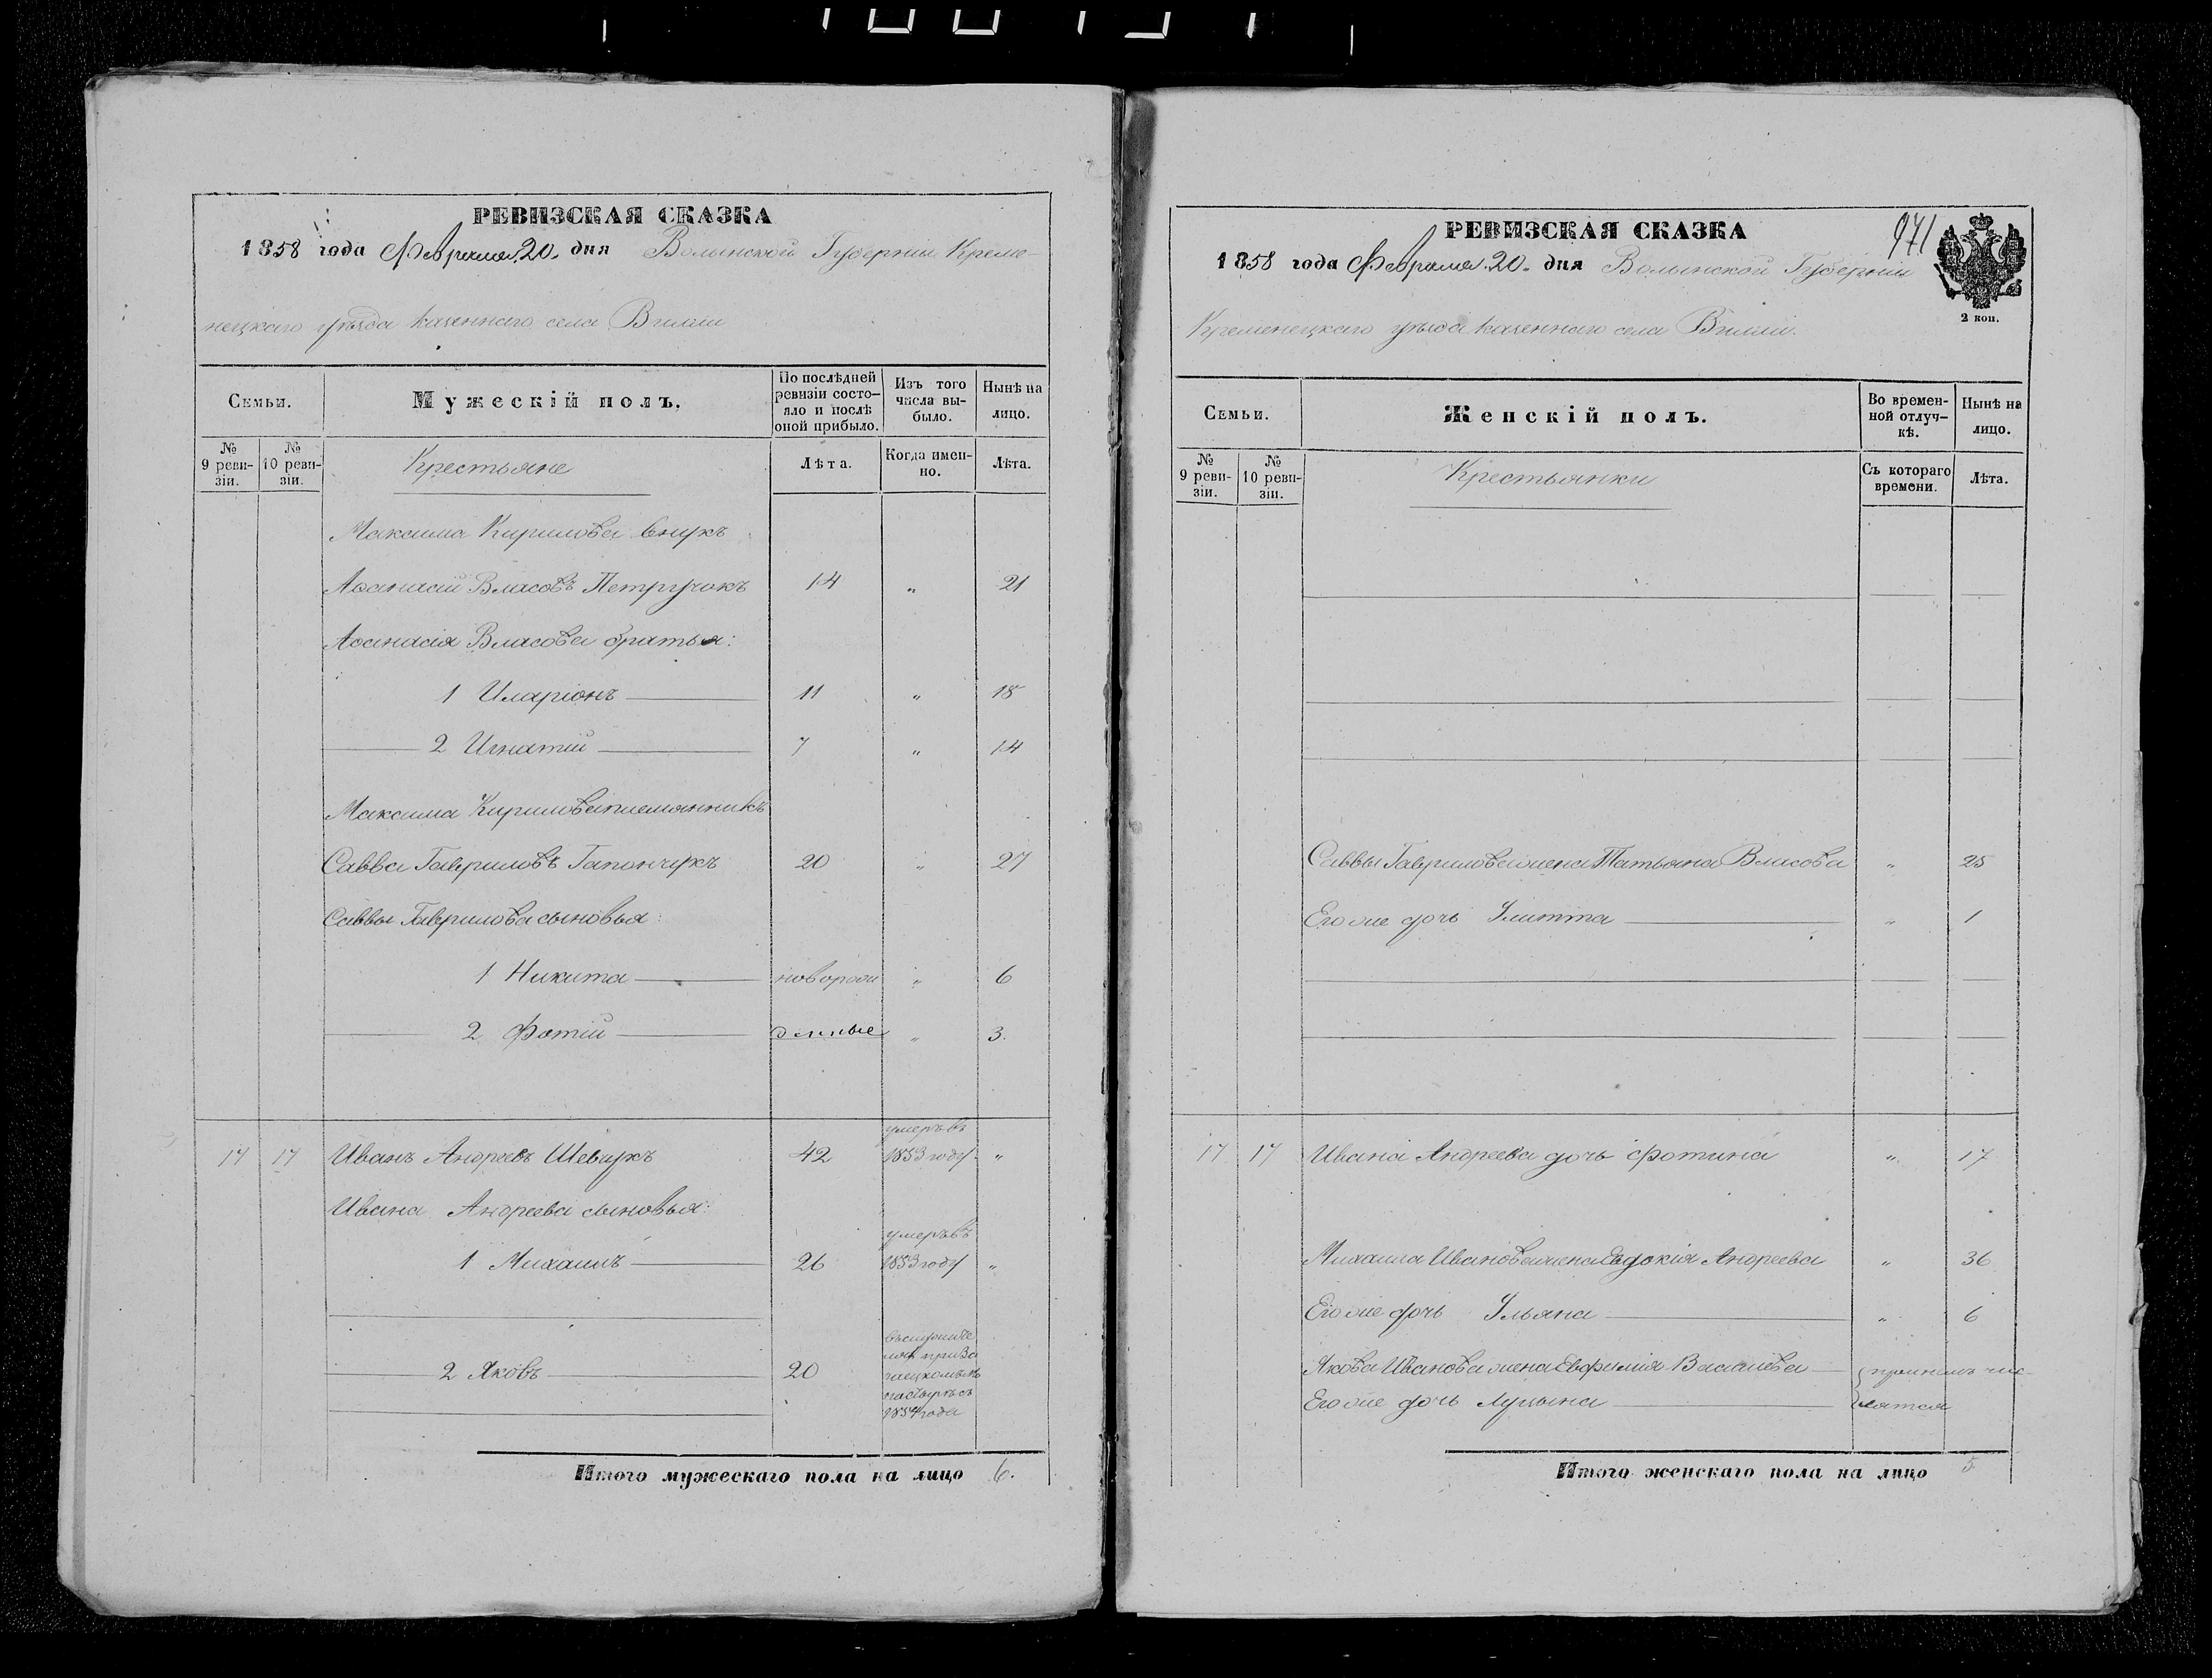 РЕВИЗСКАЯ СКАЗКА
1858 года Февраля 20. дня Волынской Губерніи Креме-
нецкаго уѣзда казеннаго села Виліи
Семьи.
Мужескій полъ.
По послѣдней ревизіи состо-
яло и послѣ оной прибыло.
Изъ того числа вы-
было.
Нынѣ на лицо.
№ 9 реви-
зіи.
№ 10 реви-
зіи.
Крестьяне
Лѣта.
Когда имен-
но.
Лѣта.
Максима Кирилова внукъ
Аѳанасій Власовъ Петручокъ 14 " 21
Аѳанасія Власова братья:
1 Иларіонъ 11 " 18
2 Игнатій 7 " 14
Максима Кирилова племянникъ
Савва Гавриловъ Гапончукъ 20 " 27
Саввы Гаврилова сыновья:
1 Никита новорож " 6
2 Фотій денные " 3.
17 17 Иванъ Андреевъ Шевчукъ 42 умеръ въ 1853 году "
Ивана Андреева сыновья:
1 Михаилъ 26 умеръ въ 1853 году "
2 Яковъ 20
1854 года
Итого мужескаго пола на лицо 6.
РЕВИЗСКАЯ СКАЗКА
971
1858 года Февраля 20. дня Волынской Губерніи
Кременецкаго уѣзда казеннаго села Виліи.
2 коп.
Семьи.
Женскій полъ.
Во времен-
ной отлуч-
кѣ.
Нынѣ на лицо.
№ 9 реви-
зіи.
№ 10 реви-
зіи.
Крестьянки
Съ котораго времени.
Лѣта.
Саввы Гаврилова жена Татьяна Власова " 25
Его же дочь Улитта " 1
17 17 Ивана Андреева дочь Фотина " 17
Михаила Иванова жена Евдокія Андреева " 36
Его же дочь Ульяна " 6
Якова Иванова жена Евфимія Василіева при немъ чис-
Его же дочь Лукіяна лятся
Итого женскаго пола на лицо 5